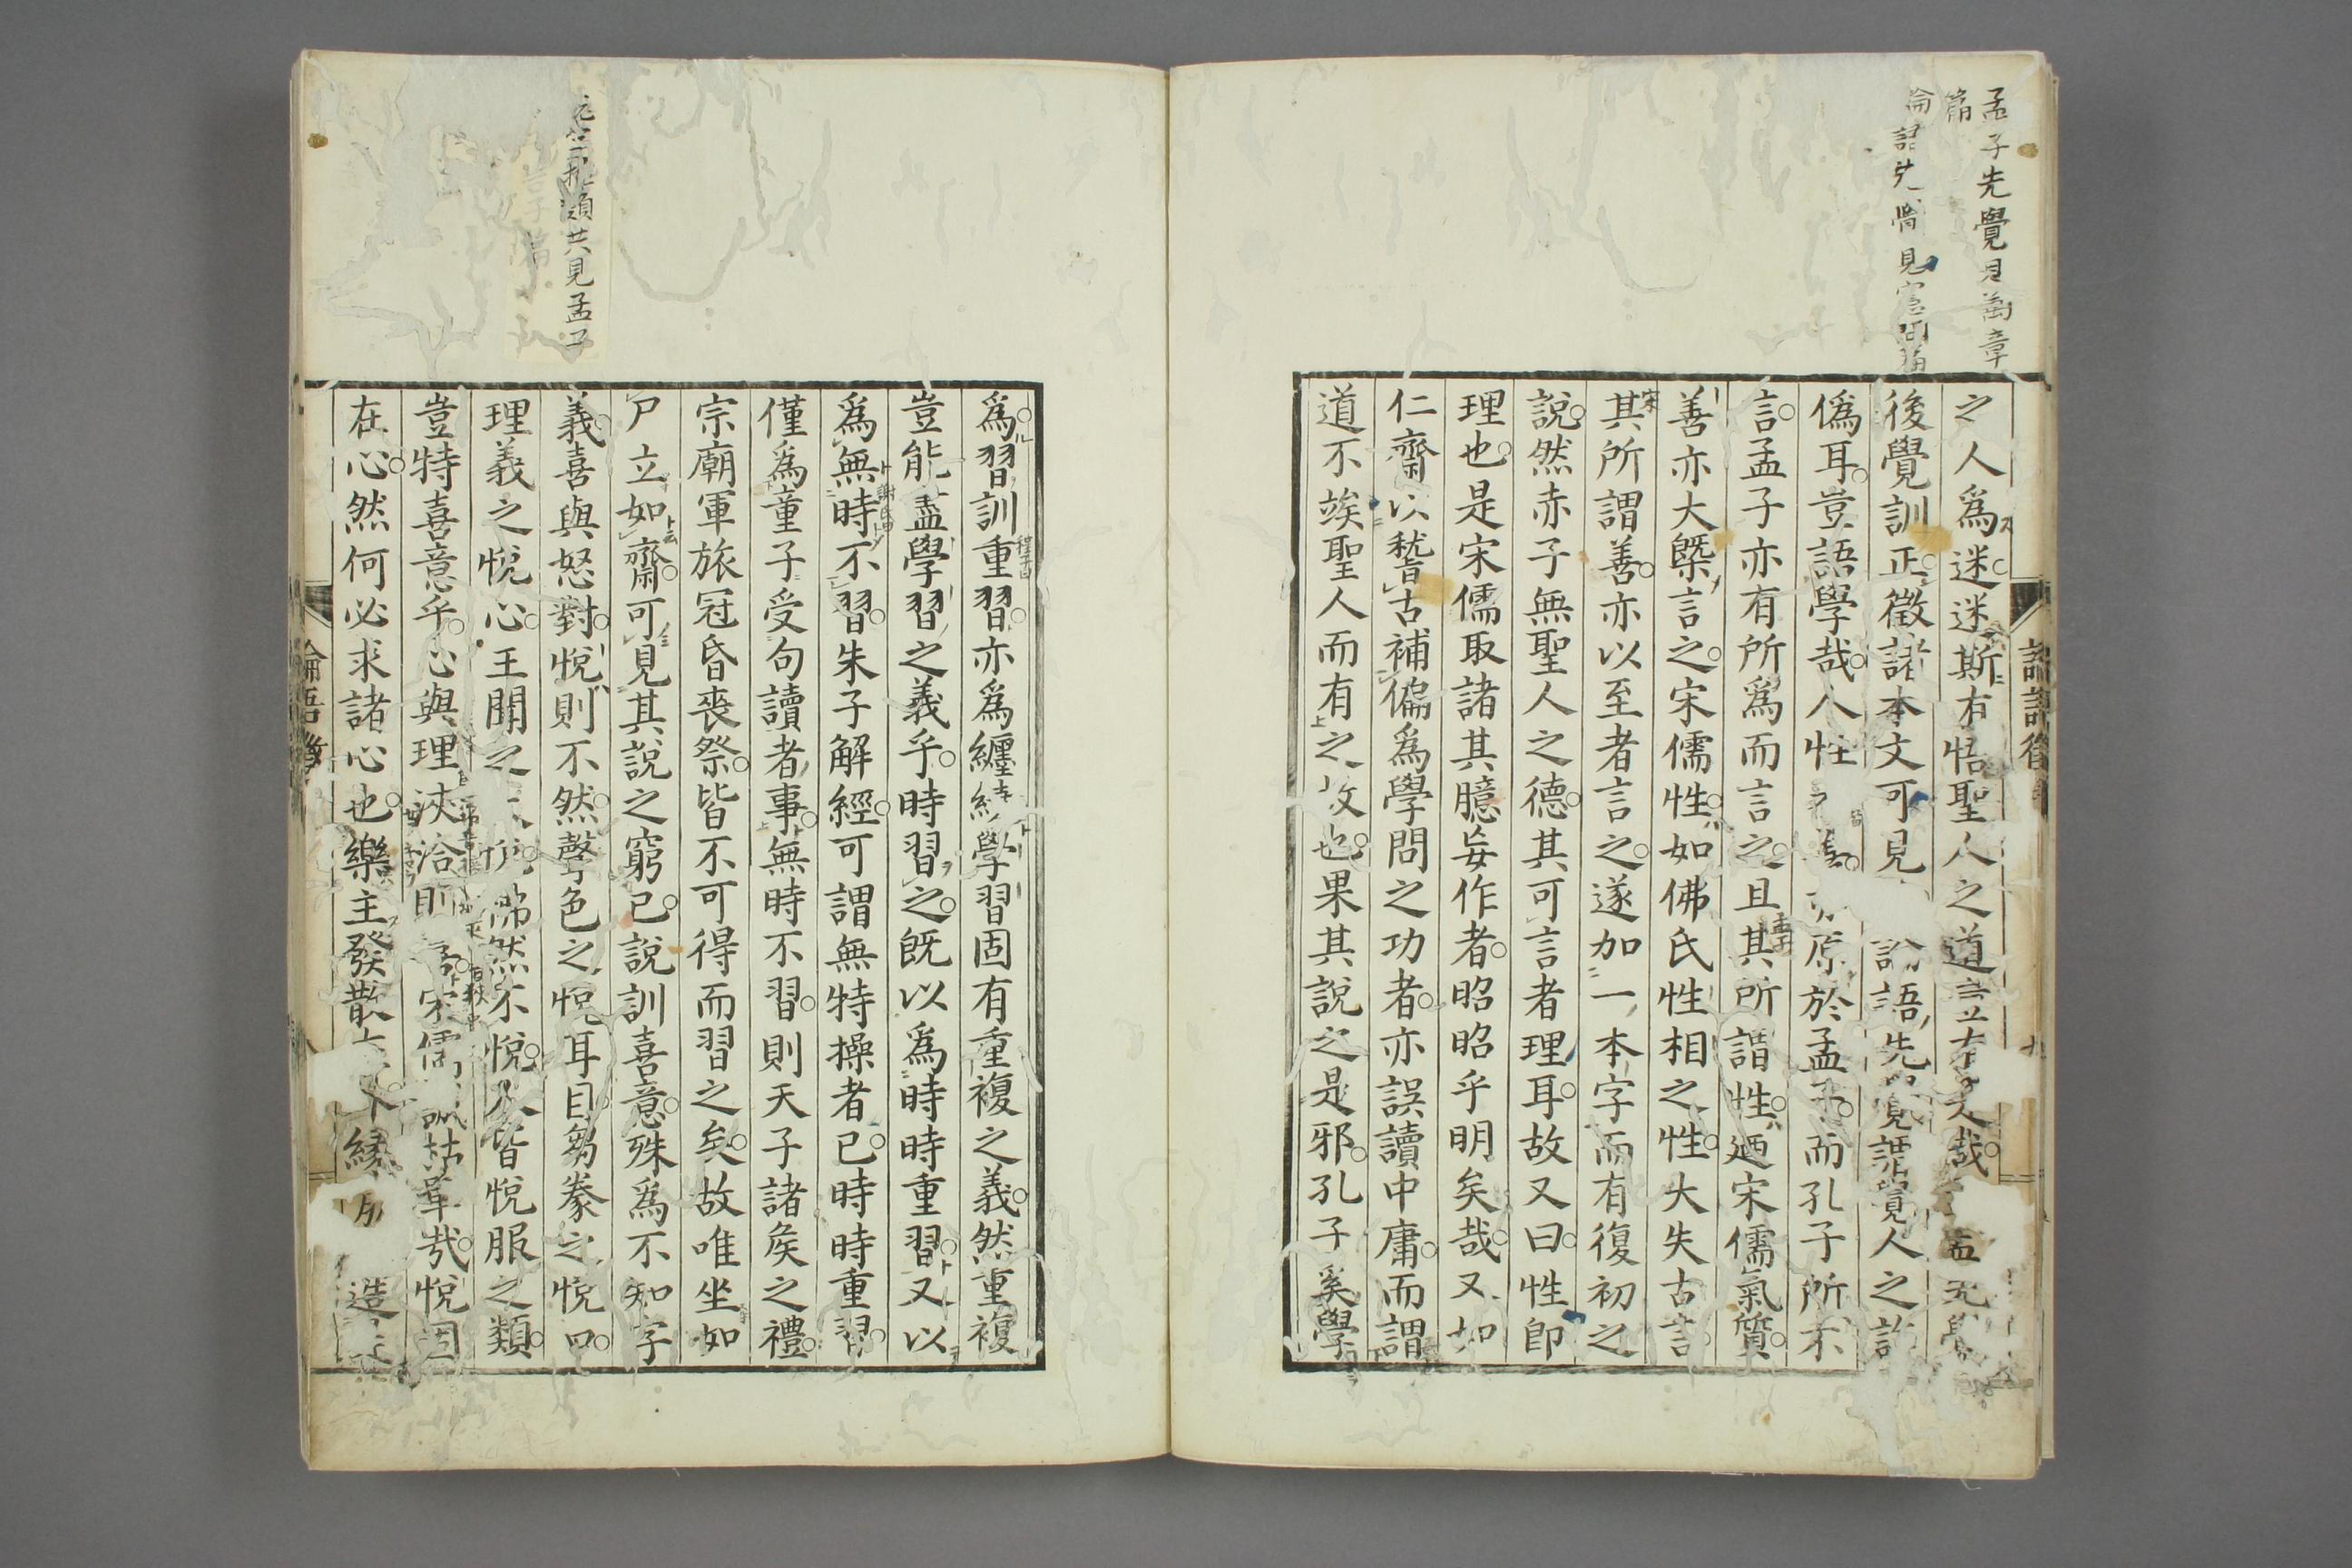 孟子先覺見萬章
篇
論語先覺見憲問篇
之人爲迷迷斯有悟聖人之道豈有哉
後覺訓正徵諸本文可見論語先覺謂覺人之詐
僞耳豈語學哉人性善原於孟子而孔子所不
言孟子亦有所爲而言之且其所謂性廼宋儒氣質
善亦大槩言之宋儒性如佛氏性相之性大失古言
其所謂善亦以至者言之遂加一本字而有復初之
說然赤子無聖人之德其可言者理耳故又曰性卽
理也是宋儒取諸其臆妄作者昭昭乎明矣哉又如
仁齋以稽古補偏爲學問之功者亦誤讀中庸而謂
道不竢聖人而有之故也果其說之是邪孔子奚學
爲習訓重習亦爲纏繞學習固有重複之義然重複
豈能盡學習之義乎時習之旣以爲時時重習又以
爲無時不習朱子解經可謂無特操者已時時重習
僅爲童子受句讀者事無時不習則天子諸矦之禮
宗廟軍旅冠昏喪祭皆不可得而習之矣故唯坐如
尸立如齋可見其說之窮已說訓喜意殊爲不知字
義喜與怒對悅則不然聲色之悅耳目芻豢之悅口
理義之悅心王聞之不悅怫然不悅及皆悅服之類
豈特喜意乎心與理浹洽宋儒哉悅固
在心然何必求諸心也樂主發散在外緣造
共見孟子
論語徵